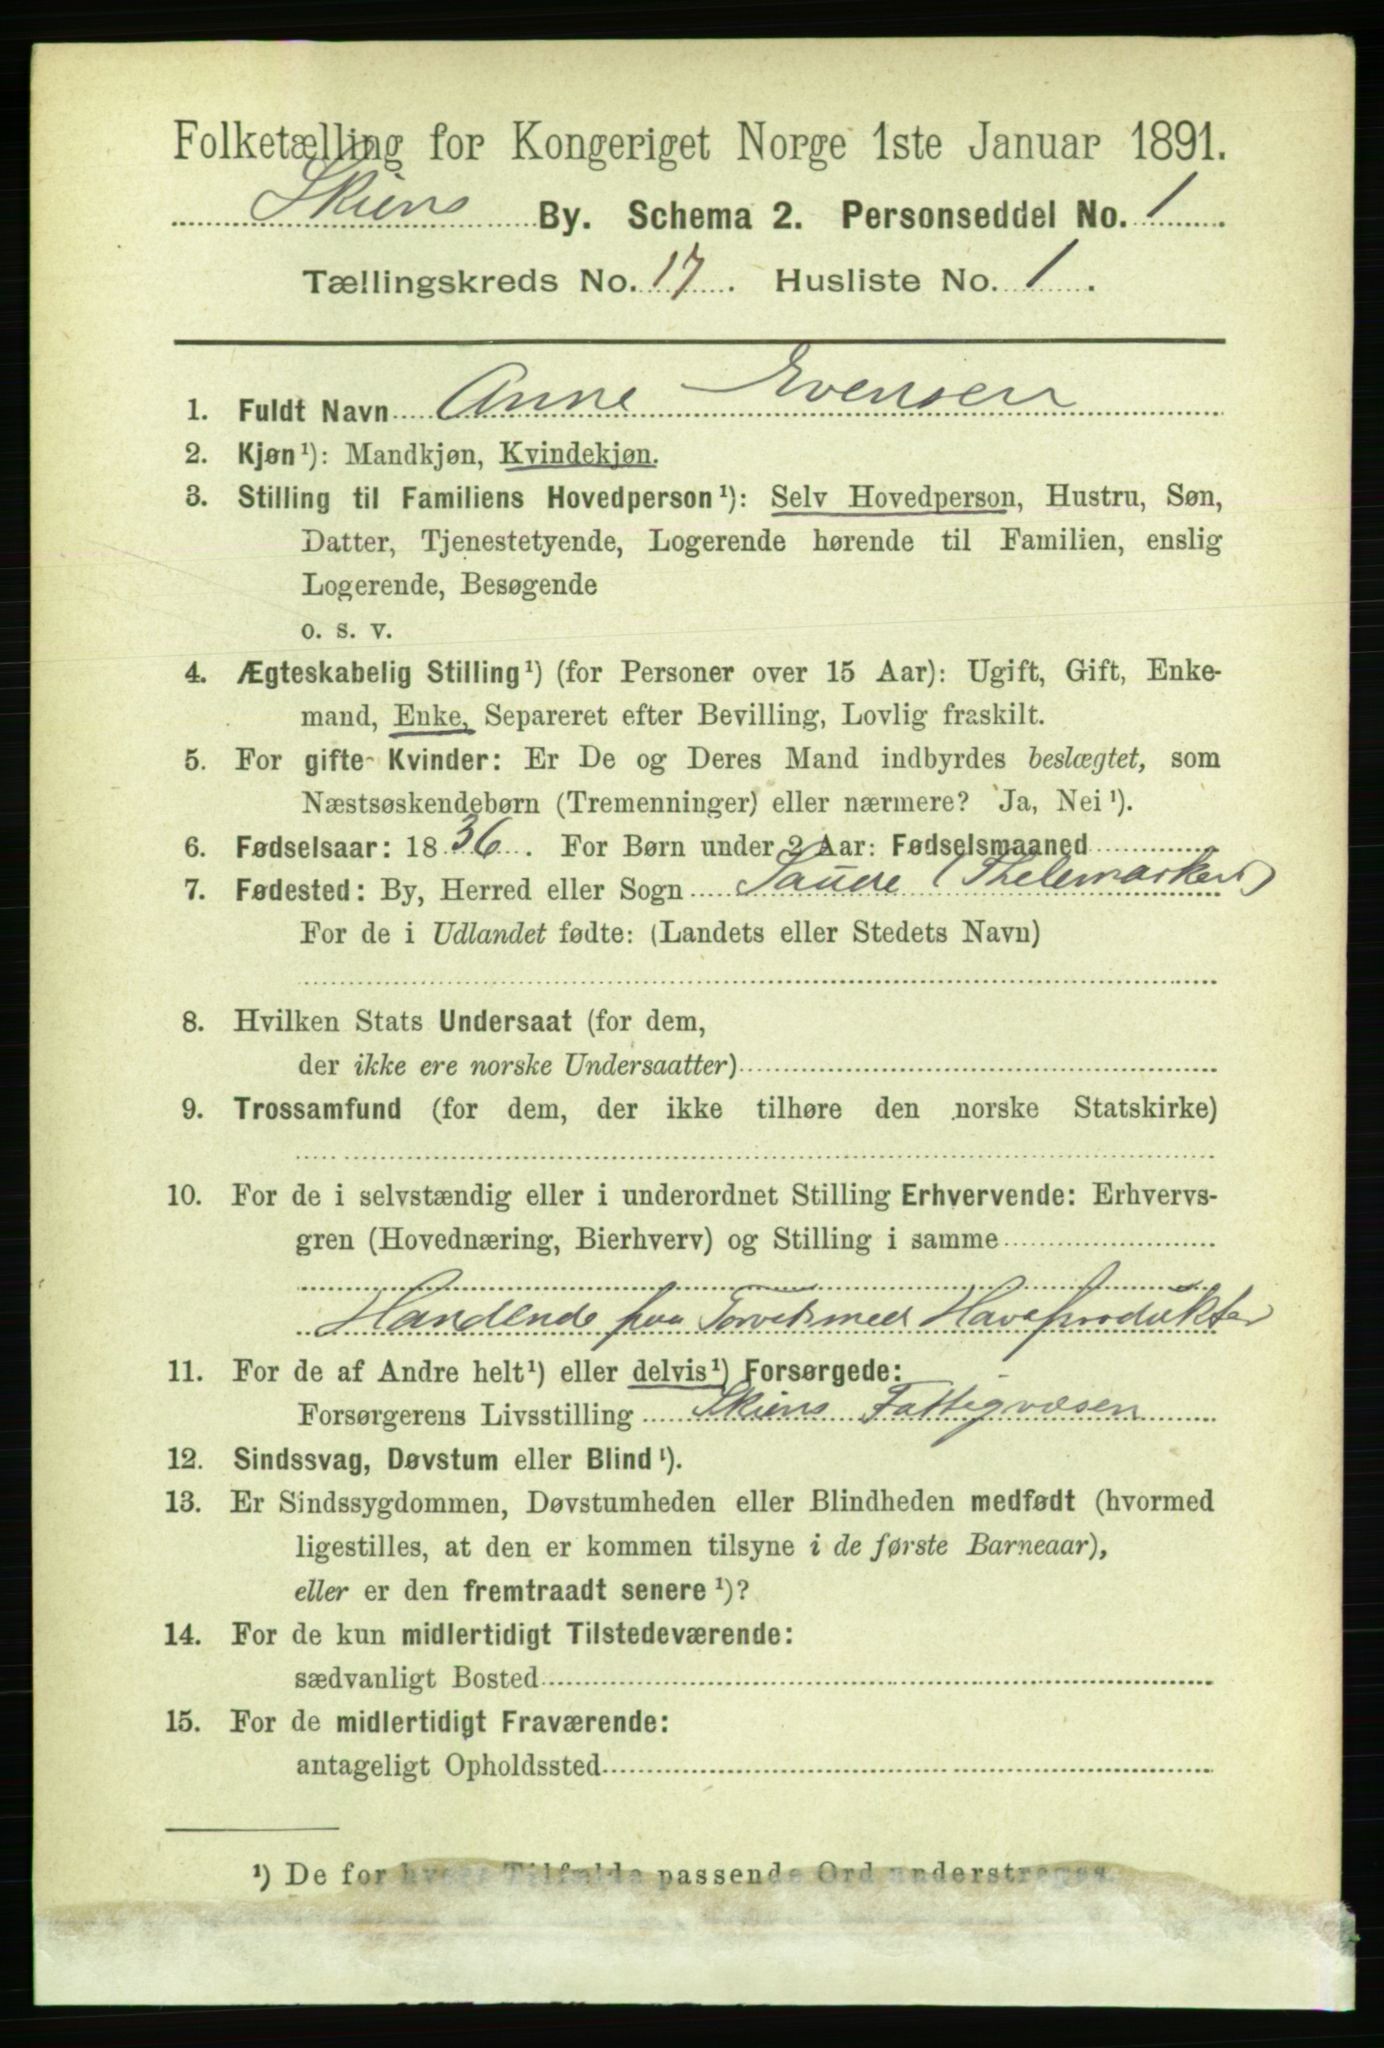 Folketælling for Kongeriget Norge 1ste Januar 1891.
Skiens By. Schema 2. Personseddel No. 1
Tællingskreds No. 17. Husliste No. 1.
1. Fuldt Navn Anne Evensen
2. Kjøn¹): Mandkjøn, Kvindekjøn.
3. Stilling til Familiens Hovedperson¹): Selv Hovedperson, Hustru, Søn,
Datter, Tjenestetyende, Logerende hørende til Familien, enslig
Logerende, Besøgende
o. s. v.
4. Ægteskabelig Stilling¹) (for Personer over 15 Aar): Ugift, Gift, Enke-
mand, Enke, Separeret efter Bevilling, Lovlig fraskilt.
5. For gifte Kvinder: Er De og Deres Mand indbyrdes beslægtet, som
Næstsøskendebørn (Tremenninger) eller nærmere? Ja, Nei¹).
6. Fødselsaar: 1836. For Børn under 2 Aar: Fødselsmaaned
7. Fødested: By, Herred eller Sogn Saude (Thelemarken)
For de i Udlandet fødte: (Landets eller Stedets Navn)
8. Hvilken Stats Undersaat (for dem,
der ikke ere norske Undersaatter)
9. Trossamfund (for dem, der ikke tilhøre den norske Statskirke)
10. For de i selvstændig eller i underordnet Stilling Erhvervende: Erhvervs-
gren (Hovednæring, Bierhverv) og Stilling i samme
Handlende paa Torvet med Haveprodukter
11. For de af Andre helt¹) eller delvis¹) Forsørgede:
Forsørgerens Livsstilling Skiens Fattigvæsen
12. Sindssvag, Døvstum eller Blind¹).
13. Er Sindssygdommen, Døvstumheden eller Blindheden medfødt (hvormed
ligestilles, at den er kommen tilsyne i de første Barneaar),
eller er den fremtraadt senere¹)?
14. For de kun midlertidigt Tilstedeværende:
sædvanligt Bosted
15. For de midlertidigt Fraværende:
antageligt Opholdssted
¹) De for hvert Tilfælde passende Ord understreges.